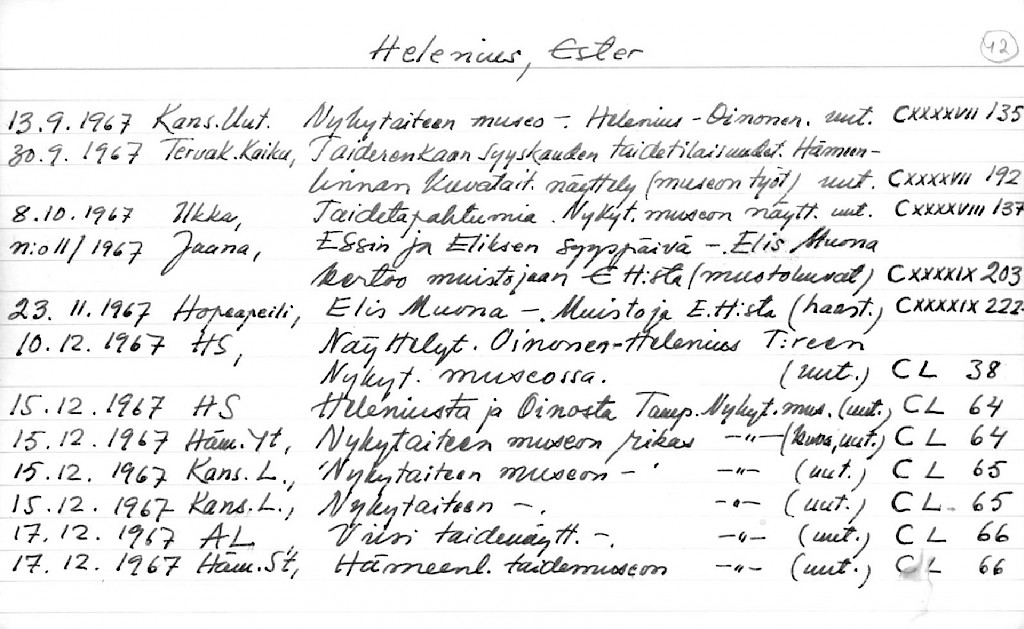 Helenius, Ester
12
13.9.1967 Kans.Uut. Nykytaiteen museo -. Helenius - Oinonen. uut. CXXXXVII 135
30.9.1967 Tervak.Kaiku, Taiderenkaan syyskauden taidetilaisuudet. Hämeen-
linnan Kuvatait. näyttely (museon työt) uut. CXXXXVII 192
8.10.1967 Ukka, Taidetapahtumia. Nykyt. museon näytt. uut. CXXXXVIII 137
n:o 11/1967 Jaana, Essin ja Eliksen syyspäivä -. Elis Muona
kertoo muistojaan E H:sta (mustokuvat) CXXXXIX 203
23. 11. 1967 Hopeapeili, Elis Muona -. Muistoja E.H:sta (haast.) CXXXXIX 222
10.12.1967 HS, Näyttelyt. Oinonen-Helenius T:reen
Nykyt. museossa. (uut.) CL 38
15.12.1967 HS Heleniusta ja Oinosta Tamp. Nykyt. mus. (uut.) CL 64
15.12.1967 Häm.Yt, Nykytaiteen museon rikas -"- (kuva, uut.) CL 64
15.12.1967 Kans.L., 'Nykytaiteen museon -' -"- (uut.) CL 65
15.12.1967 Kans.L., Nykytaiteen -. -"- (uut.) CL. 65
17.12.1967 AL, Viisi taidenäytt. -. -"- (uut.) CL 66
17.12.1967 Häm.St, Hämeenl. taidemuseon -"- (uut.) CL 66